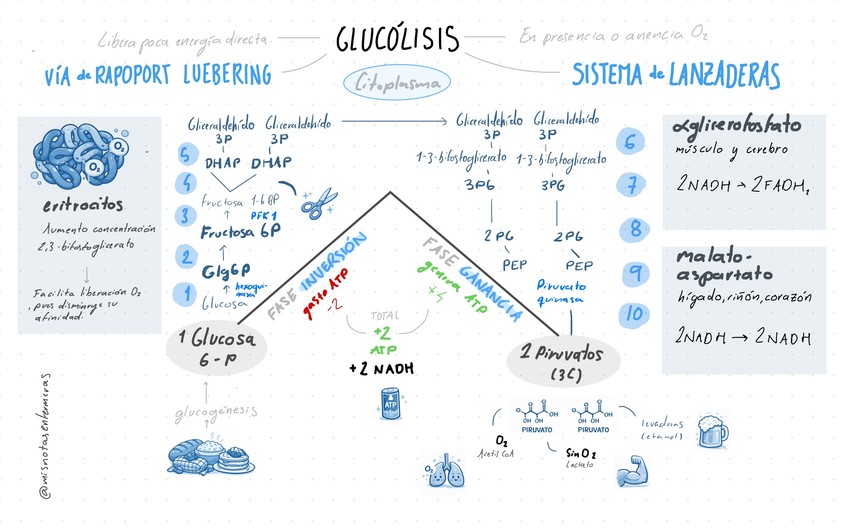 Libera poca energía directa.
GLUCÓLISIS
En presencia o ausencia O2
VÍA de RAPOPORT LUEBERING
Citoplasma
SISTEMA de LANZADERAS
O2
O2
eritrocitos
Aumento concentración
2,3-bifosfoglicerato
Facilita liberación O2
, pues disminuye su
afinidad.
Gliceraldehído
3P
Gliceraldehído
3P
5
DHAP
DHAP
4
Fructosa 1-6BP
3
PFK1
Fructosa 6P
2
Glg6P
1
hexoqui-
nasa
Glucosa
1 Glucosa
6-P
glucogénesis
FASE INVERSIÓN
gasto ATP
-2
FASE GANANCIA
genera ATP
+4
TOTAL
+2
ATP
+2 NADH
ATP
Gliceraldehído
3P
Gliceraldehído
3P
1-3-bifosfoglicerato
1-3-bifosfoglicerato
3PG
3PG
2PG
2PG
PEP
PEP
Piruvato
quinasa
2 Piruvatos
(3C)
PIRUVATO
PIRUVATO
O2
Acetil CoA
O2
Sin O2
Lactato
levaduras
(etanol)
6
7
8
9
10
αglicerofosfato
músculo y cerebro
2NADH → 2FADH2
malato-
aspartato
hígado, riñón, corazón
2NADH → 2NADH
@misnotasenfermeras